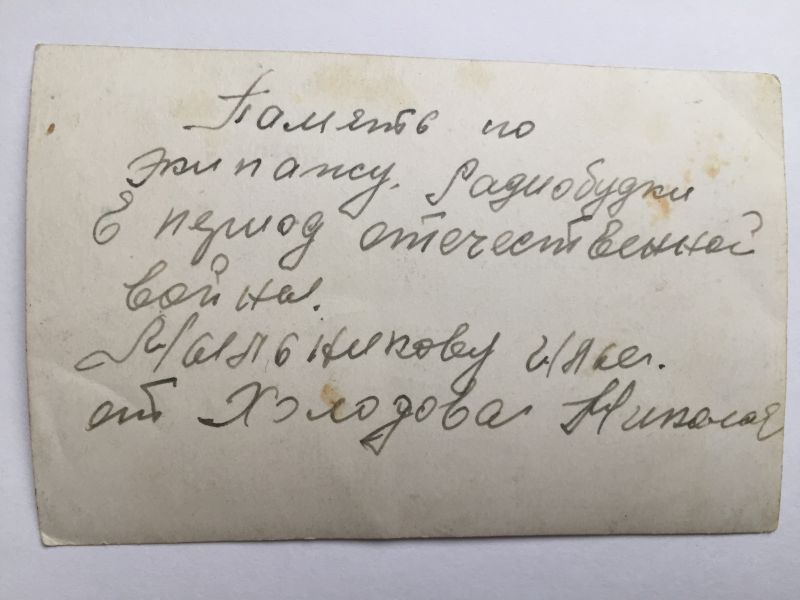 Память по
экипажу. Радиобудки
в период отечественной
войны.
Мыльникову Илье.
от Холодова Николая